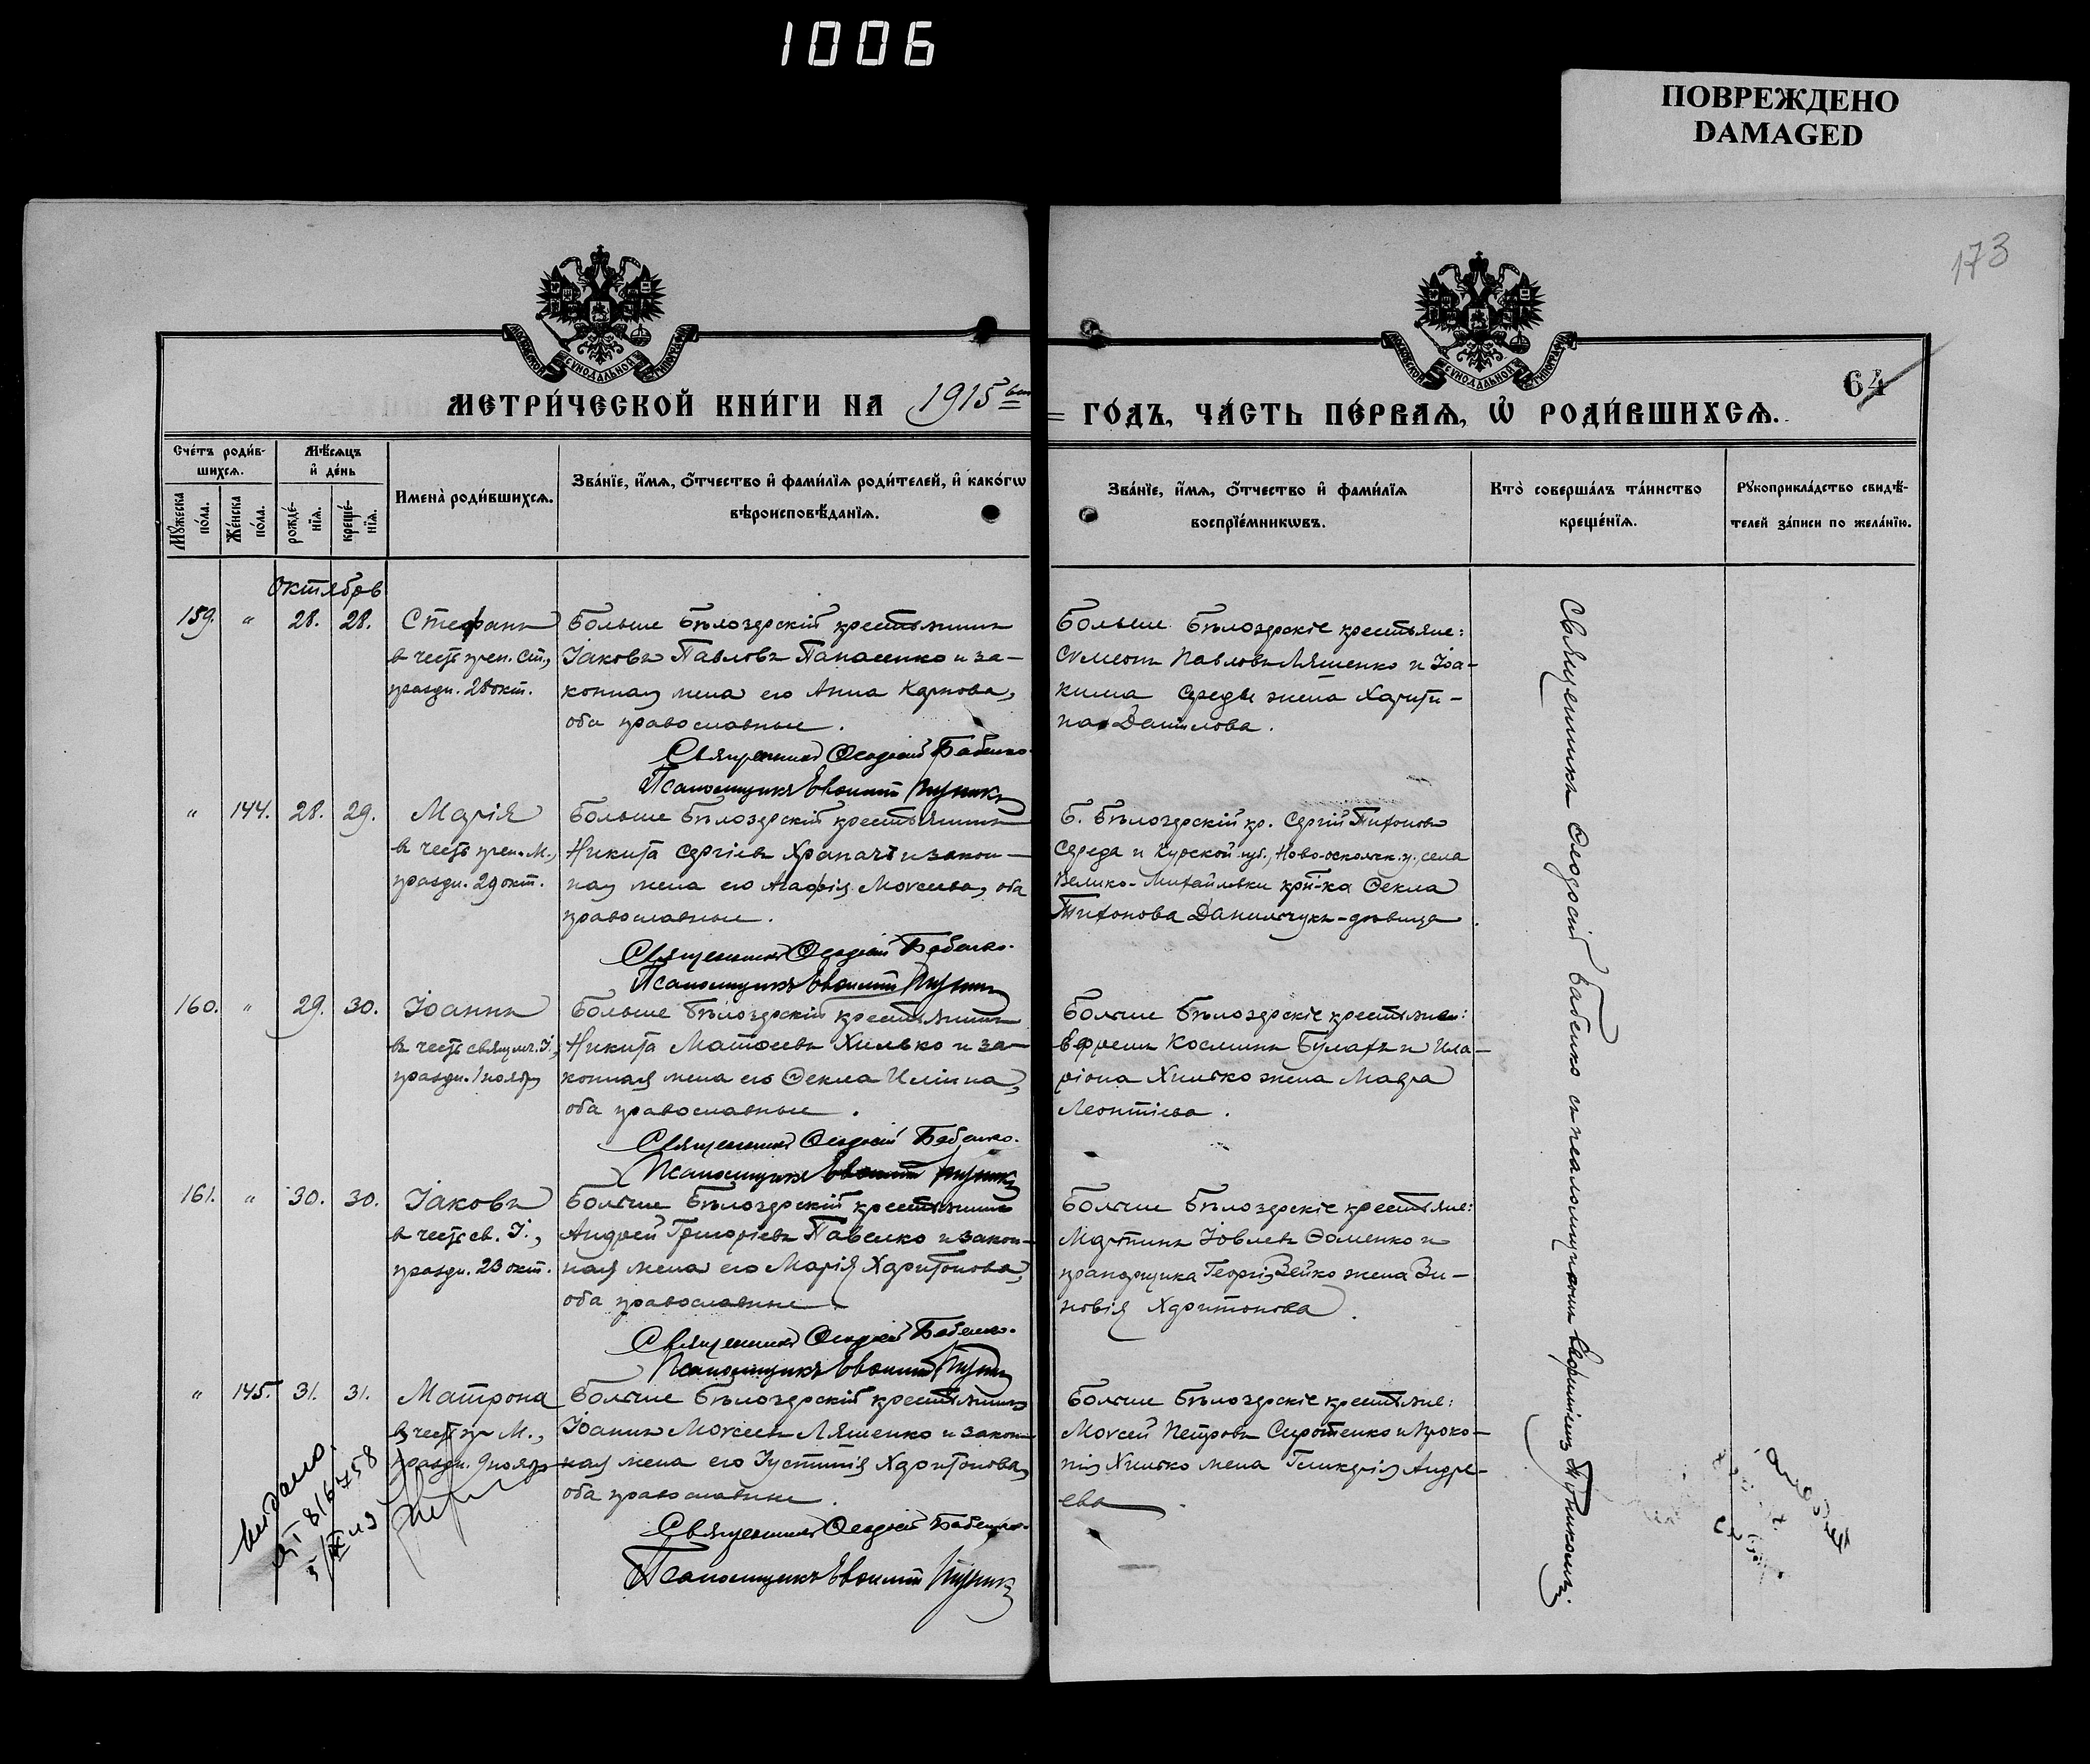 1006
ПОВРЕЖДЕНО
DAMAGED
173
64
МЕТРИ́ЧЕСКОЙ КНИ́ГИ НА 1915
ГО́ДЪ, ЧА́СТЬ ПЕ́РВАѦ, Ѡ҆ РОДИ́ВШИХСѦ.
Сче́тъ роди́в-
шихсѧ.
Мѣ́сѧцъ
и҆ де́нь
Мꙋ́жеска
по́ла.
Же́нска
по́ла.
рожде́-
нїѧ.
креще́-
нїѧ.
Имена̀ роди́вшихсѧ.
Зва́нїе, и҆́мѧ, ѻ҆́тчество и҆ фами́лїѧ роди́телей, и҆ како́гѡ
вѣроисповѣ́данїѧ.
Зва́нїе, и҆́мѧ, ѻ҆́тчество и҆ фами́лїѧ
воспрїе́мникѡвъ.
Кто̀ соверша́лъ та́инство
креще́нїѧ.
Рꙋкоприкла́дство свидѣ́-
телей за́писи по жела́нїю.
Октябрь
159. " 28. 28. Стефанъ
въ честь преп. Ст.,
праздн. 28 окт.
Больше Бѣлозерскій крестьянинъ
Іаковъ Павловъ Панасенко и за-
конная жена его Анна Карпова,
оба православные.
Священникъ Ѳеодосій Бабенко.
Псаломщикъ Евѳимій
Больше Бѣлозерскіе крестьяне:
Сѵмеонъ Павловъ Ляшенко и Іоа-
кима Середы жена Харити-
на Данилова.
" 144. 28. 29. Марія
въ честь преп. М.,
праздн. 29 окт.
Больше Бѣлозерскій крестьянинъ
Никита Сергіевъ Храпачъ и закон-
ная жена его Агафія Моѵсеева, оба
православные.
Священникъ Ѳеодосій Бабенко.
Псаломщикъ Евѳимій
Б. Бѣлозерскій кр. Сергій Тихоновъ
Середа и Курской губ., Ново-оскольск. у. села
Велико-Михайловки кр-ка Ѳекла
Тихонова Данильчукъ-дѣвица.
160. " 29. 30. Іоаннъ
въ честь свящмч. І.,
праздн. 1 ноября
Больше Бѣлозерскій крестьянинъ
Никита Матѳеевъ Хилько и за-
конная жена его Ѳекла Иліина,
оба православные.
Священникъ Ѳеодосій Бабенко.
Псаломщикъ Евѳимій
Больше Бѣлозерскіе крестьяне:
Ефремъ Косминъ Булахъ и Ила-
ріона Хилько жена Мавра
Леонтіева.
161. " 30. 30. Іаковъ
въ честь св. І.,
праздн. 23 окт.
Больше Бѣлозерскій крестьянинъ
Андрей Григоріевъ Павелко и закон-
ная жена его Марія Харитонова,
оба православные.
Священникъ Ѳеодосій Бабенко.
Псаломщикъ Евѳимій
Больше Бѣлозерскіе крестьяне:
Мартинъ Іовлевъ Ѳоменко и
прапорщика Георгія Зейко жена Зи-
новія Харитонова.
" 145. 31. 31. Матрона
въ честь пр. М.,
праздн. 9 ноября
Больше Бѣлозерскій крестьянинъ
Іоаннъ Моѵсеевъ Ляшенко и закон-
ная жена его Іустинія Харитонова,
оба православные.
Священникъ Ѳеодосій Бабенко.
Псаломщикъ Евѳимій
Больше Бѣлозерскіе крестьяне:
Моѵсей Петровъ Сиротенко и Проко-
пія Хилько жена Гликерія Андре-
ева.
Священникъ Ѳеодосій Бабенко съ псаломщикомъ Евѳиміемъ